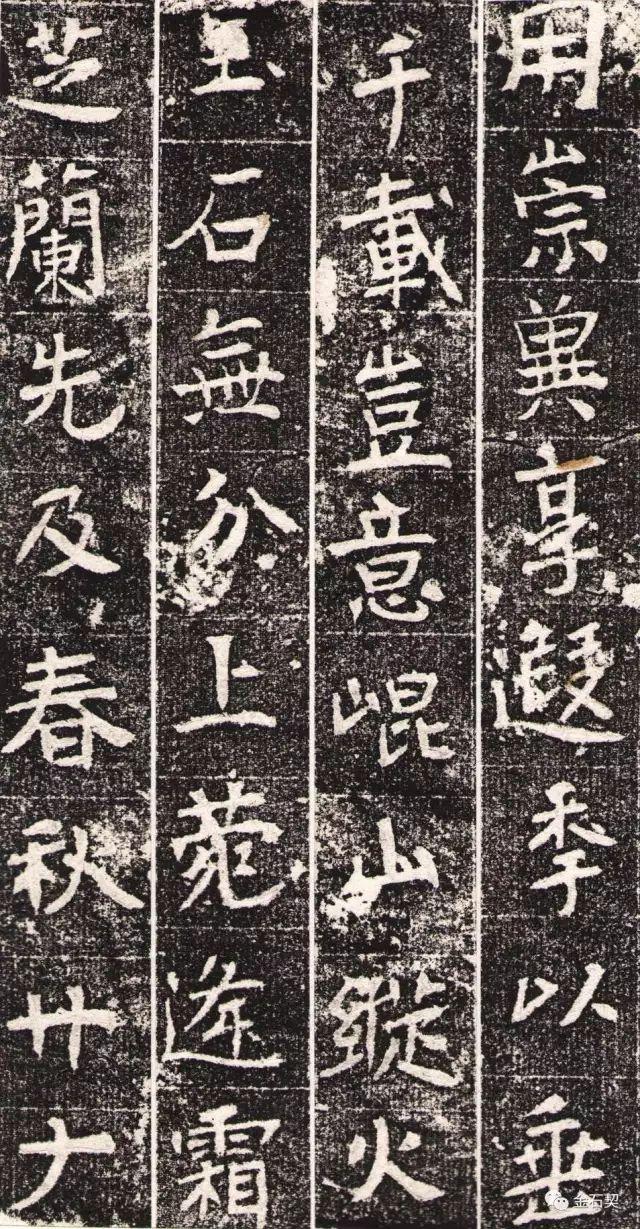 用崇冀享遐季以垂
千載豈意崐山縱火
玉石無分上菀逢霜
芝蘭先及春秋廿六
金石契